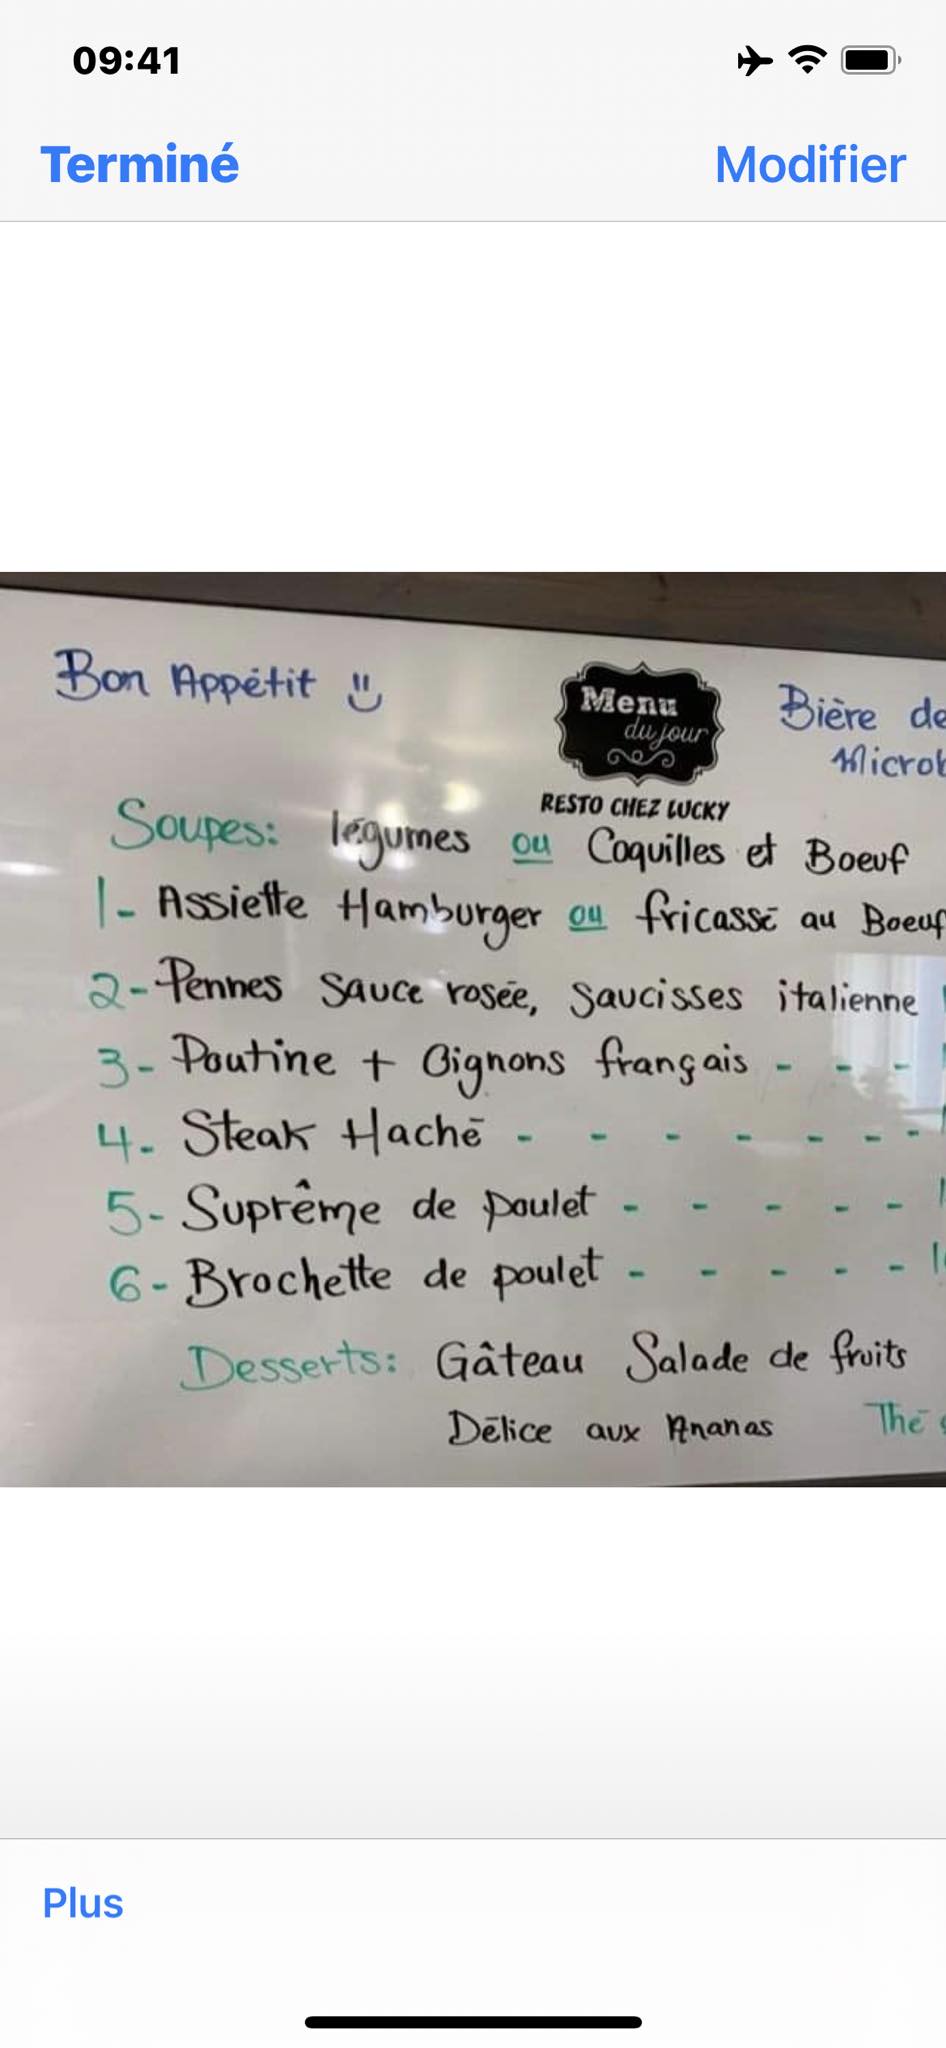 09:41
Terminé Modifier
Bon Appétit
Menu
du jour
RESTO CHEZ LUCKY
Bière de
Soupes: légumes ou Coquilles et Boeuf
1- Assiette Hamburger ou fricassé au Boeuf
2- Pennes Sauce rosée, Saucisses italienne
3- Poutine + Oignons français - - -
4- Steak Haché - - - - - - -
5- Suprême de poulet - - - - -
6- Brochette de poulet - - - - -
Desserts: Gâteau Salade de fruits
Délice aux Ananas Thé
Plus